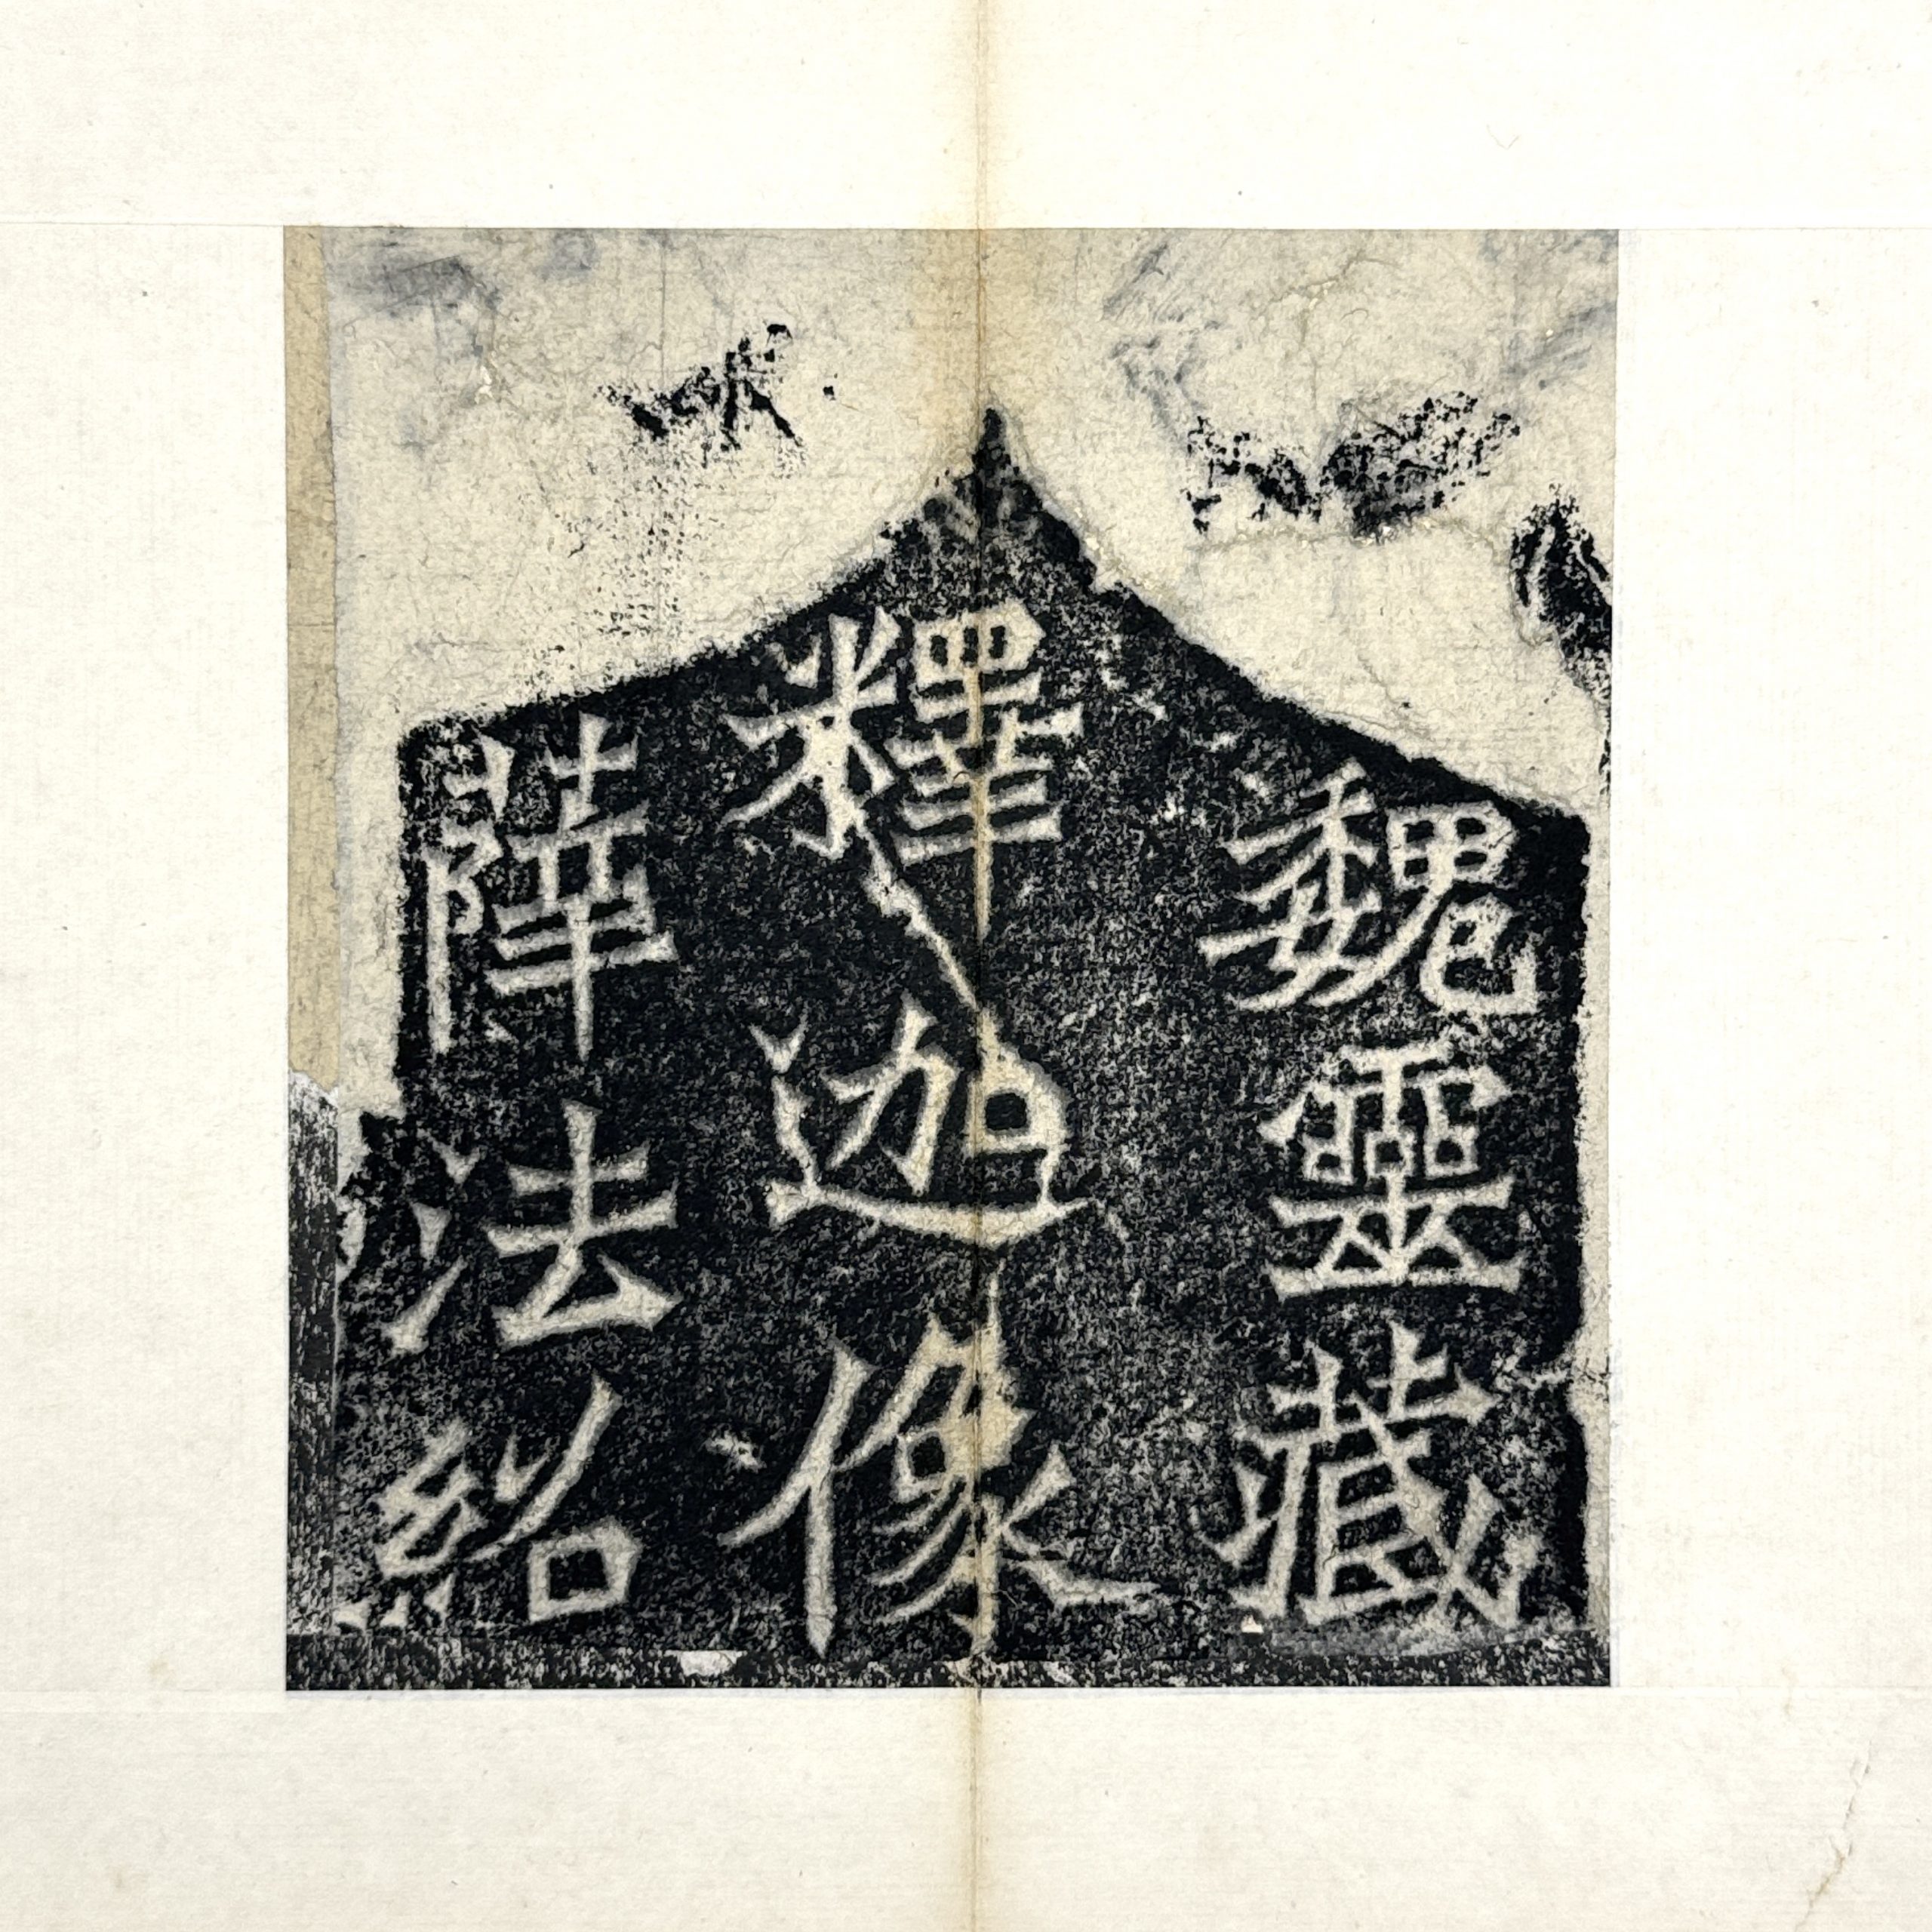 魏靈藏
釋迦像
薛法紹